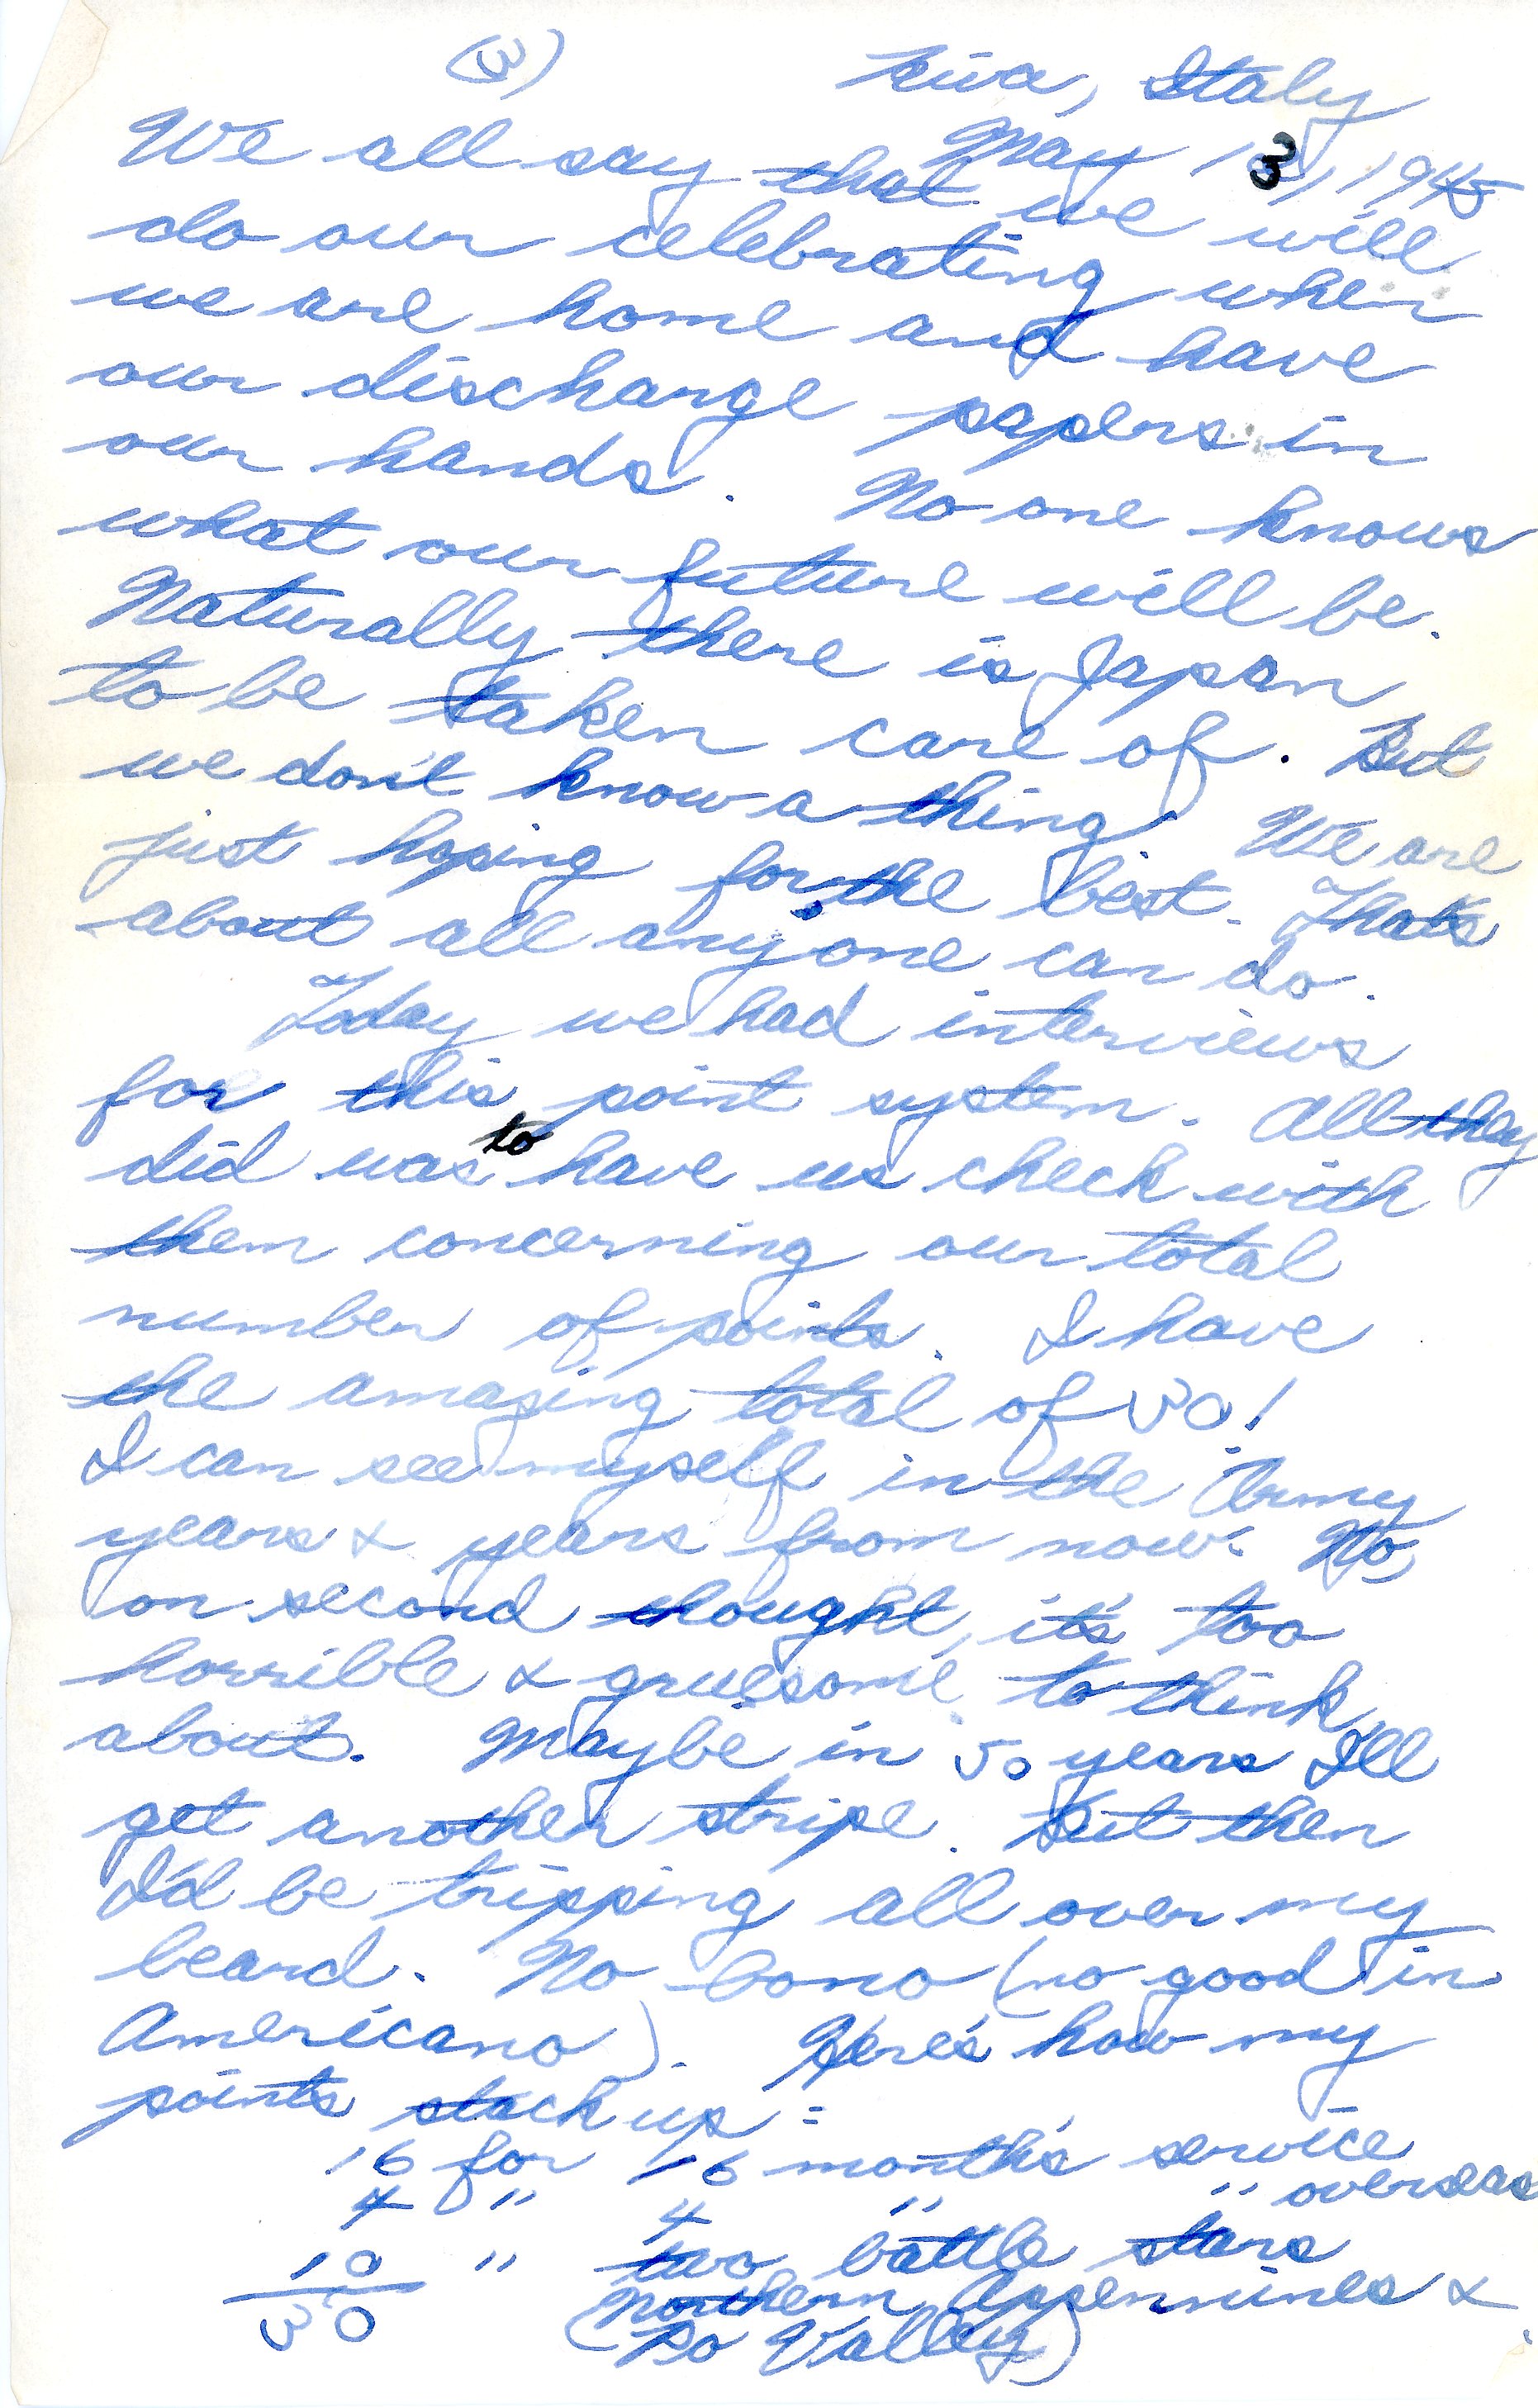 (3)
Riva, Italy
May 13, 1945
We all say that we will
do our celebrating when
we are home and have
our discharge papers in
our hands. No one knows
what our future will be.
Naturally there is Japan
to be taken care of. But
we don't know a thing. We are
just hoping for the best. That's
about all anyone can do.
Today we had interviews
for this point system. All they
did was to have us check with
them concerning our total
number of points. I have
the amazing total of 30!
I can see myself in the Army
years & years from now. No,
on second thought, it's too
horrible & gruesome to think
about. Maybe in 50 years I'll
get another stripe. But then
I'd be tripping all over my
beard. No bono (no good in
Americano). Here's how my
points stack up:
16 for 16 months service
4 " 4 " " overseas
10 " two battle stars
30 (Northern Appennines &
Po Valley)